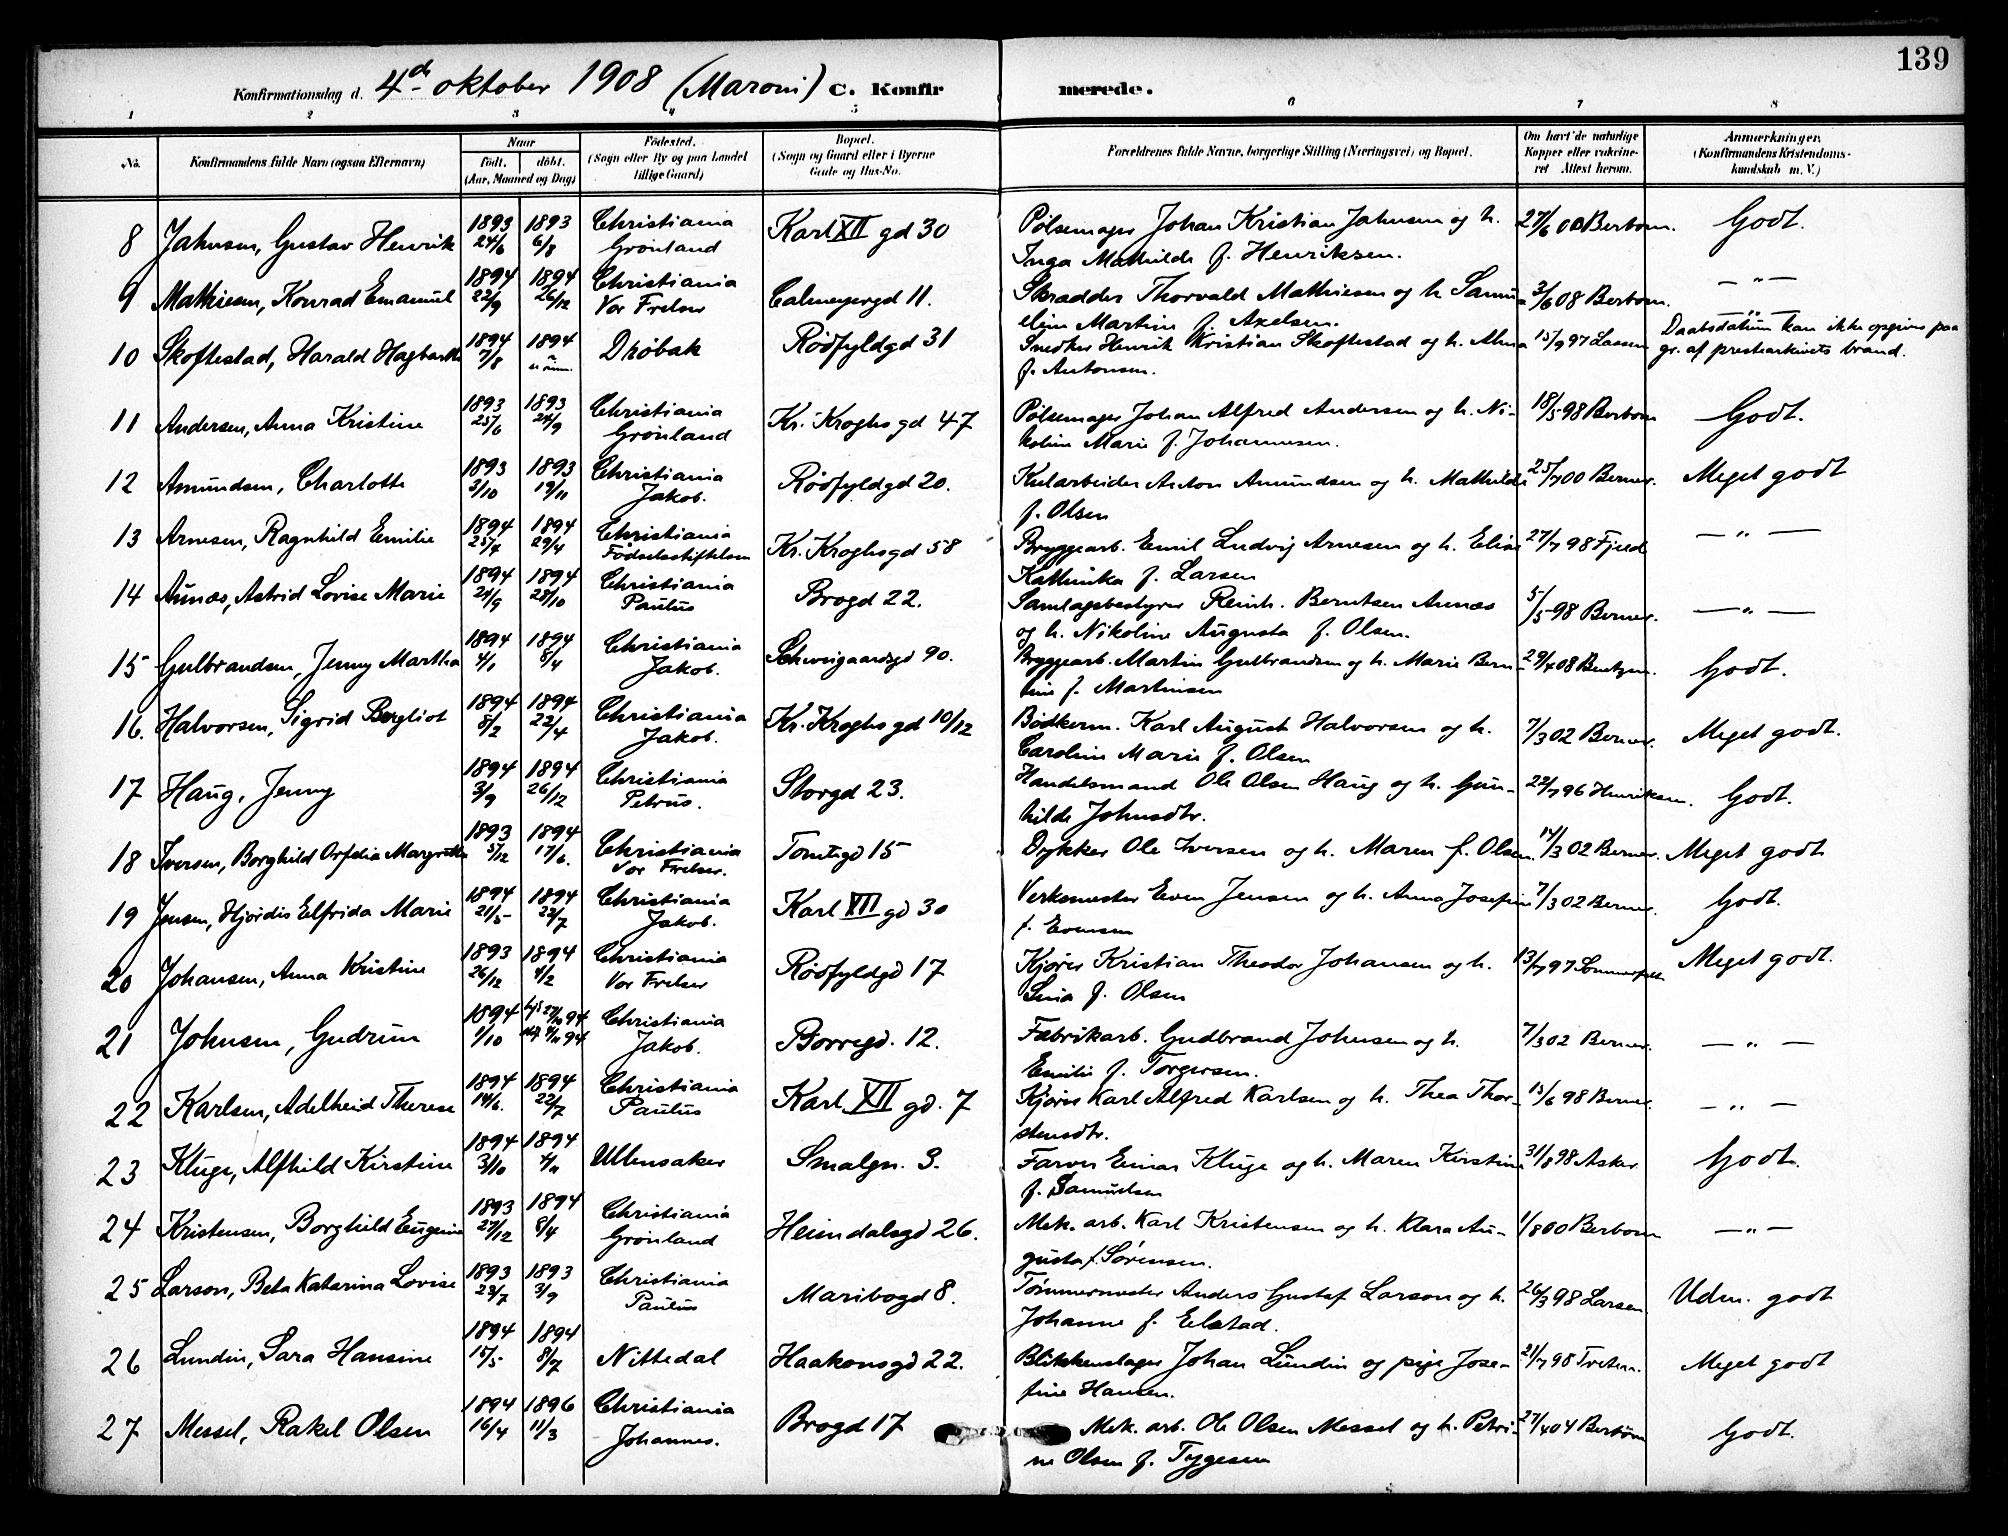 139
Konfirmationsdag d. 4de oktober 1908 (Maroni) C. Konfirmerede.
1 2 3 4 5 6 7 8
No. Konfirmandens fulde Navn (ogsaa Efternavn) Naar født. døbt. (Aar, Maaned og Dag) Fødested. (Sogn eller By og paa Landet tillige Gaard) Bopæl. (Sogn og Gaard eller i Byerne Gade og Hus-No. Forældrenes fulde Navne, borgerlige Stilling (Næringsvei) og Bopæl. Om havt de naturlige Kopper eller vakcineret Attest herom. Anmærkninger. (Konfirmandens Kristendomskundskab m. V.)
8 Jahnsen, Gustav Henrik 1893 24/6 1893 6/8 Christiania Grønland Karl XII gd 30 Pølsemager Johan Kristian Jahnsen og h. Inga Mathilde f. Henriksen. 27/6 00 Berbom. Godt.
9 Mathiesen, Konrad Emanuel 1894 22/9 1894 26/12 Christiania Vor Frelser Calmeyergd 11. Skrædder Thorvald Mathiesen og h. Samueline Martine f. Axelsen. 3/6 08 Berbom. — " —
10 Skoftestad, Harald Hagbarth 1894 7/8 1894 Drøbak Rødfyldgd 31 Snedker Henrik Kristian Skoftestad og h. Alma f. Antonsen. 15/9 97 Lassen — " — Daabsdatum kan ikke opgives paa gr. af prestearkivets brand.
11 Andersen, Anna Kristine 1893 25/6 1893 24/9 Christiania Grønland Kr. Kroghs gd 47 Pølsemager Johan Alfred Andersen og h. Nikoline Marie f. Johannesen. 18/5 98 Berbom Godt.
12 Amundsen, Charlotte 1893 3/10 1893 19/11 Christiania Jakob. Rødfyldgd 20. Kularbeider Anton Amundsen og h. Mathilde f. Olsen 25/7 00 Berner. Meget godt
13 Arnesen, Ragnhild Emilie 1894 25/4 1894 29/4 Christiania Fødselsstiftelsen Kr. Kroghs gd 58 Bryggearb. Emil Ludvig Arnesen og h. Elise Kathinka f. Larsen 27/7 98 Fjeld — " —
14 Aunæs, Astrid Lovise Marie 1894 21/9 1894 28/10 Christiania Paulus Brogd 22. Samlagsbestyrer Reinh. Berntsen Aunæs og h. Nikoline Augusta f. Olsen. 5/5 98 Berner. — " —
15 Gulbrandsen, Jenny Martha 1894 4/1 1894 8/4 Christiania Jakob. Schweigaardsgd 90. Bryggearb. Martin Gulbrandsen og h. Marie Berntine f. Martinsen 29/4 08 Bentzen. Godt.
16. Halvorsen, Sigrid Bergliot 1894 8/2 1894 22/4 Christiania Jakob. Kr. Kroghs gd 10/12 Bødkerm. Karl August Halvorsen og h. Caroline Marie f. Olsen 7/3 02 Berner. Meget godt.
17 Haug, Jenny 1894 3/9 1894 26/12 Christiania Petrus. Storgd 23. Handelsmand Ole Olsen Haug og h. Gunhilde Johnsdtr. 22/7 96 Henriksen. Godt.
18 Iversen, Borghild Orfdia Margrethe 1893 5/12 1894 17/6. Christiania Vor Frelser. Tomtegd 15 Dykker Ole Iversen og h. Maren f. Olsen. 14/3 02 Berner. Meget godt
19 Jensen, Hjørdis Elfrida Marie 1894 21/5 1894 22/7 Christiania Jakob. Karl XII gd 30 Verksmester Even Jensen og h. Anna Josefine f. Evensen 7/3 02 Berner. Godt.
20 Johansen, Anna Kristine 1893 26/12 1894 4/2 Christiania Vor Frelser Rødfyldgd 17 Kjører Kristian Theodor Johansen og h. Sina f. Olsen 13/7 97 Sommerfelt Meget godt.
21 Johnsen, Gudrun 1894 1/10 27/10 94 4/11 94 Christiania Jakob. Borregd. 12. Fabrikarb. Gudbrand Johnsen og h. Emilie f. Torgersen. 7/3 02 Berner. — " —
22 Karlsen, Adelheid Therese 1894 14/6. 1894 22/7 Christiania Paulus Karl XII gd. 7 Kjører Karl Alfred Karlsen og h. Thea Thorstensdtr. 15/6 98 Berner. — " —
23 Kluge, Alfhild Kirstine 1894 3/10 1894 4/11 Ullensaker Smalgn. 3. Farver Einar Kluge og h. Maren Kirstine f. Samuelsen 31/8 98 Asker. Godt.
24 Kristensen, Borghild Eugenie 1893 27/12 1894 8/4 Christiania Grønland Heimdalsgd 26. Mek. arb. Karl Kristensen og h. Klara Augusta f. Sørensen. 1/8 00 Berbom — " —
25 Larson, Beta Katarina Lovise 1893 23/7 1893 3/9 Christiania Paulus Maribogd 8. Tømmermester Anders Gustaf Larson og h. Johanne f. Elstad. 26/3 98 Larsen Udm. godt
26 Lundin, Sara Hansine 1894 15/5 1894 8/7 Nittedal Haakonsgd 22. Blikkenslager Johan Lundin og pige Josefine Hansen. 21/7 98 Meget godt
27 Messel, Rakel Olsen 1894 16/4 1896 11/3 Christiania Johannes. Brogd 17 Mek. arb. Ole Olsen Messel og h. Petrine Olsen f. Tygesen 27/4 04 Berbom Godt.